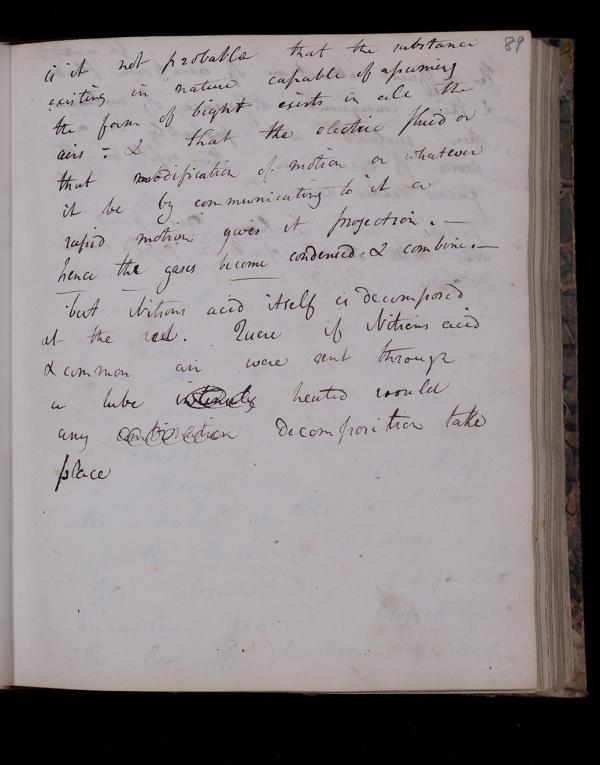 89
is it not probable that the substance
existing in nature capable of assuming
the form of light exists in all the
airs :- & that the electric fluid or
that modification of motion or whatever
it be by communicating to it a
rapid motion gives it projection. —
hence the gases become condensed. & combine. —
but Nitrous acid itself is decomposed
at the red. Quere if Nitrous acid
& common air were sent through
a tube intensely heated would
any decomposition take
place